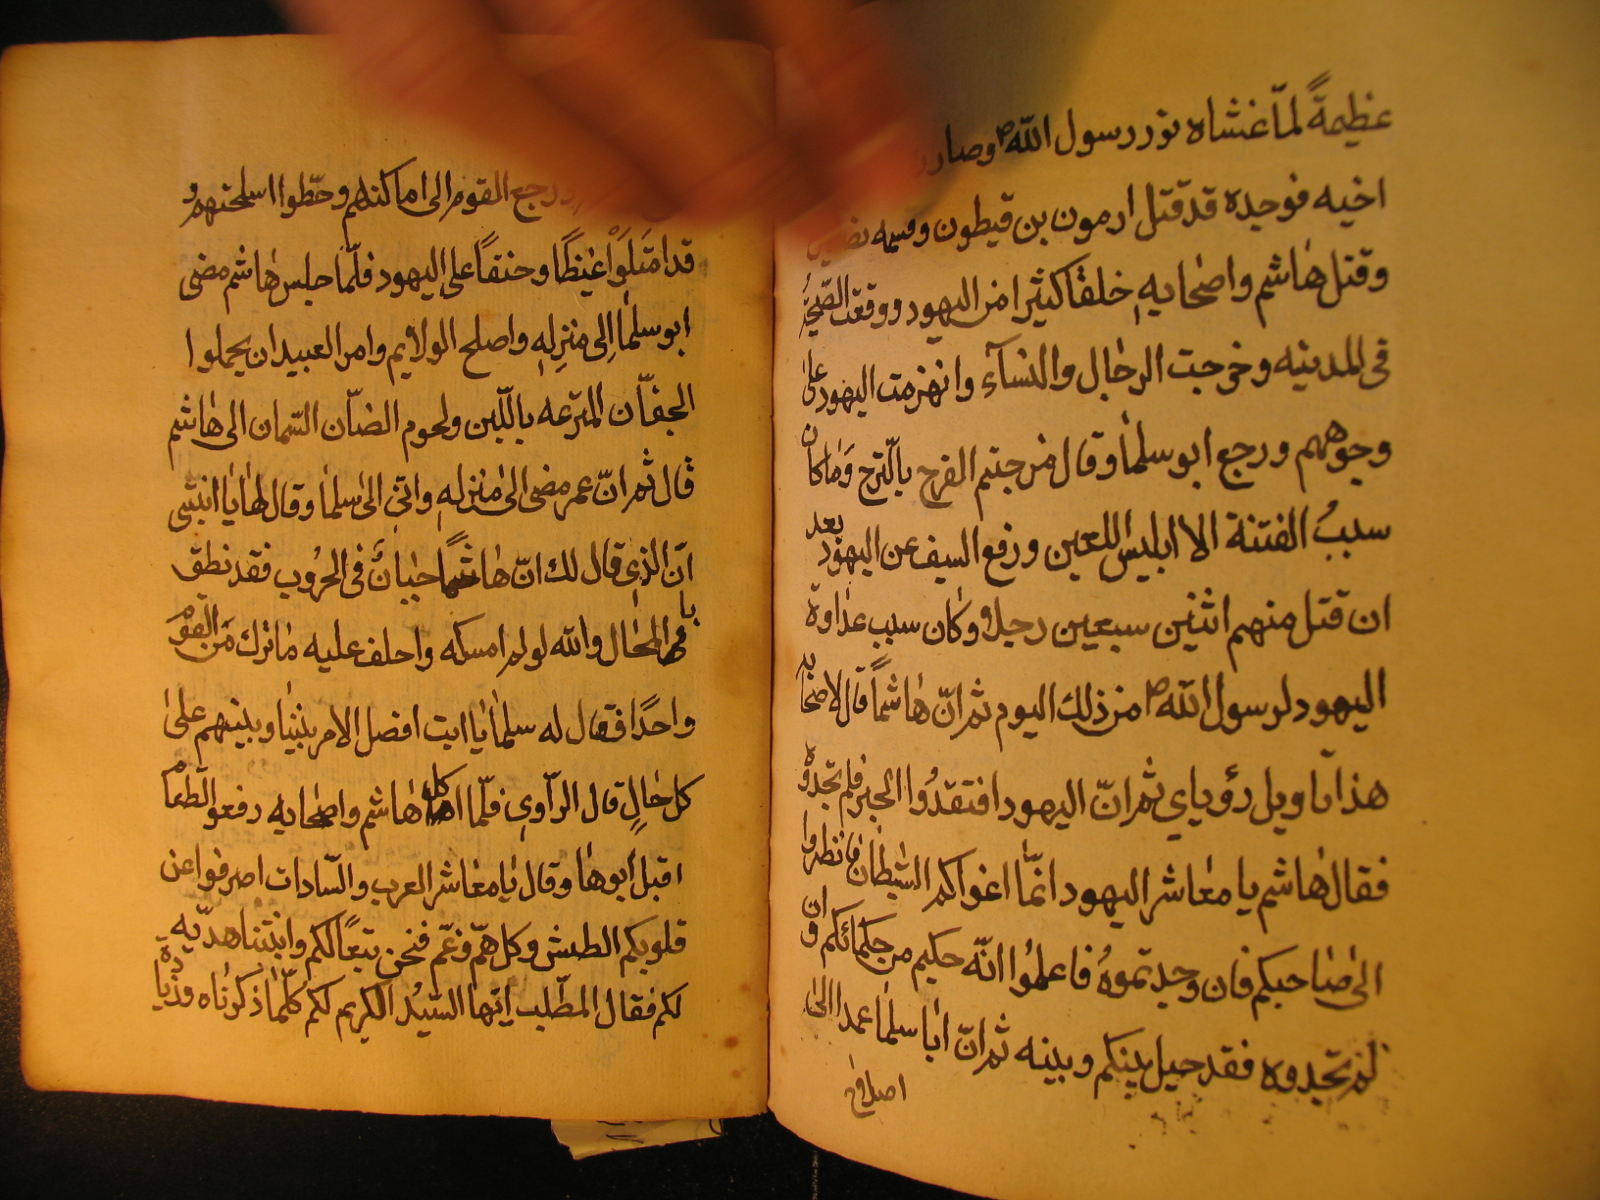 عظيمةً لمّا غشاه نور رسول اللّه ص وصار
اخيه فوجده قد قتل ارمون بن قيطون وقسمه نصفين
وقتل هاشم واصحابه خلقا كثيرا من اليهود ووقعت الصّيحة
فى المدينه وخرجت الرجال والنسآء وانهزمت اليهود على
وجوههم ورجع ابو سلما وقال مزجتم الفرح بالتّرح وما كان
سببُ الفتنة الا ابليس اللعين ورفع السيف عن اليهود بعد
ان قتل منهم اثنين سبعين رجلا وكان سبب عداوة
اليهود لرسول اللّه ص من ذلك اليوم ثم انّ هاشماً قال لاصحابه
هذا تاويل رؤياي ثم انّ اليهود افتقدُوا الحبر فلم تجدوهُ
فقال هاشم يا معاشر اليهود انمّا اغواكم الشيطان فانظروا
الى صاحبكم فان وجدتموهُ فاعلمُوا انّه حكيم من حكمائكم وان
لم تجدوه فقد حيل بينكم وبينه ثم انّ ابا سلما عمد الى
اصلاح
ورجع القوم الى اماكنهم وحطّوا اسلحتهم و
قد امتَلَوْا غيظًا وحنقاً على اليهود فلمّا جلس هاشم مضى
ابو سلما الى منزله واصلح الولايم وامر العبيد ان يحملوا
الجفّان المترعه باللّبن ولحوم الضاّن السّمان الى هاشم
قال ثم انّ عمر مضى الى منزله واتى الى سلما وقال لها يا ابنتى
انّ الذى قال لك انّ هاشماً جبانٌ فى الحرُوب فقد نطق
بالمحال واللّه لو لم امسكه واحلف عليه ما ترك من القوم
واحدًا فقال له سلما يا ابت افصل الامر بيننا وبينهم على
كل حالٍ قال الرّاوى فلمّا اكل هاشم واصحابه رفعوا الطّعام
اقبل ابوها وقال يا معاشر العرب والسّادات اصرفوا عن
قلوبكم الطيش وكل همّ وغمّ فنحن تبعًا لكم وابنتنا هديّه
لكم فقال المطّلب ايّها السّيدُ الكريم لكم كلّما ذكرناه وزيادة